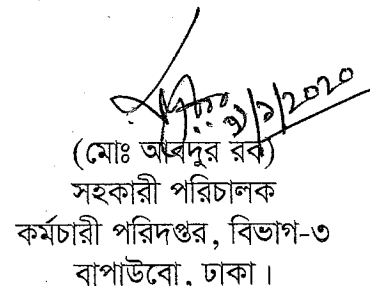 ৩/১/2020
(মোঃ আবদুর রব)
সহকারী পরিচালক
কর্মচারী পরিদপ্তর, বিভাগ-৩
বাপাউবো, ঢাকা।